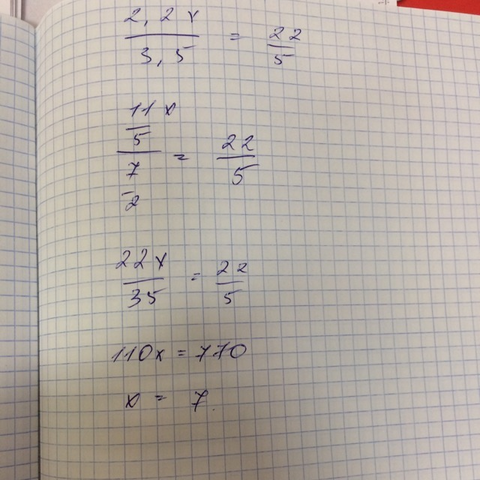 2,2x / 3,5 = 22 / 5
11/5 x / 7/2 = 22 / 5
22x / 35 = 22 / 5
110x = 770
x = 7